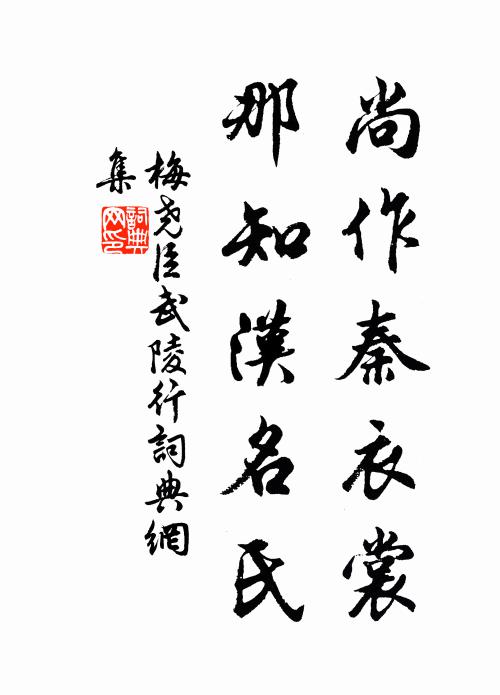 尚作秦衣裳
那知漢名氏
梅堯臣武陵行詞典網
集
詞典
网印